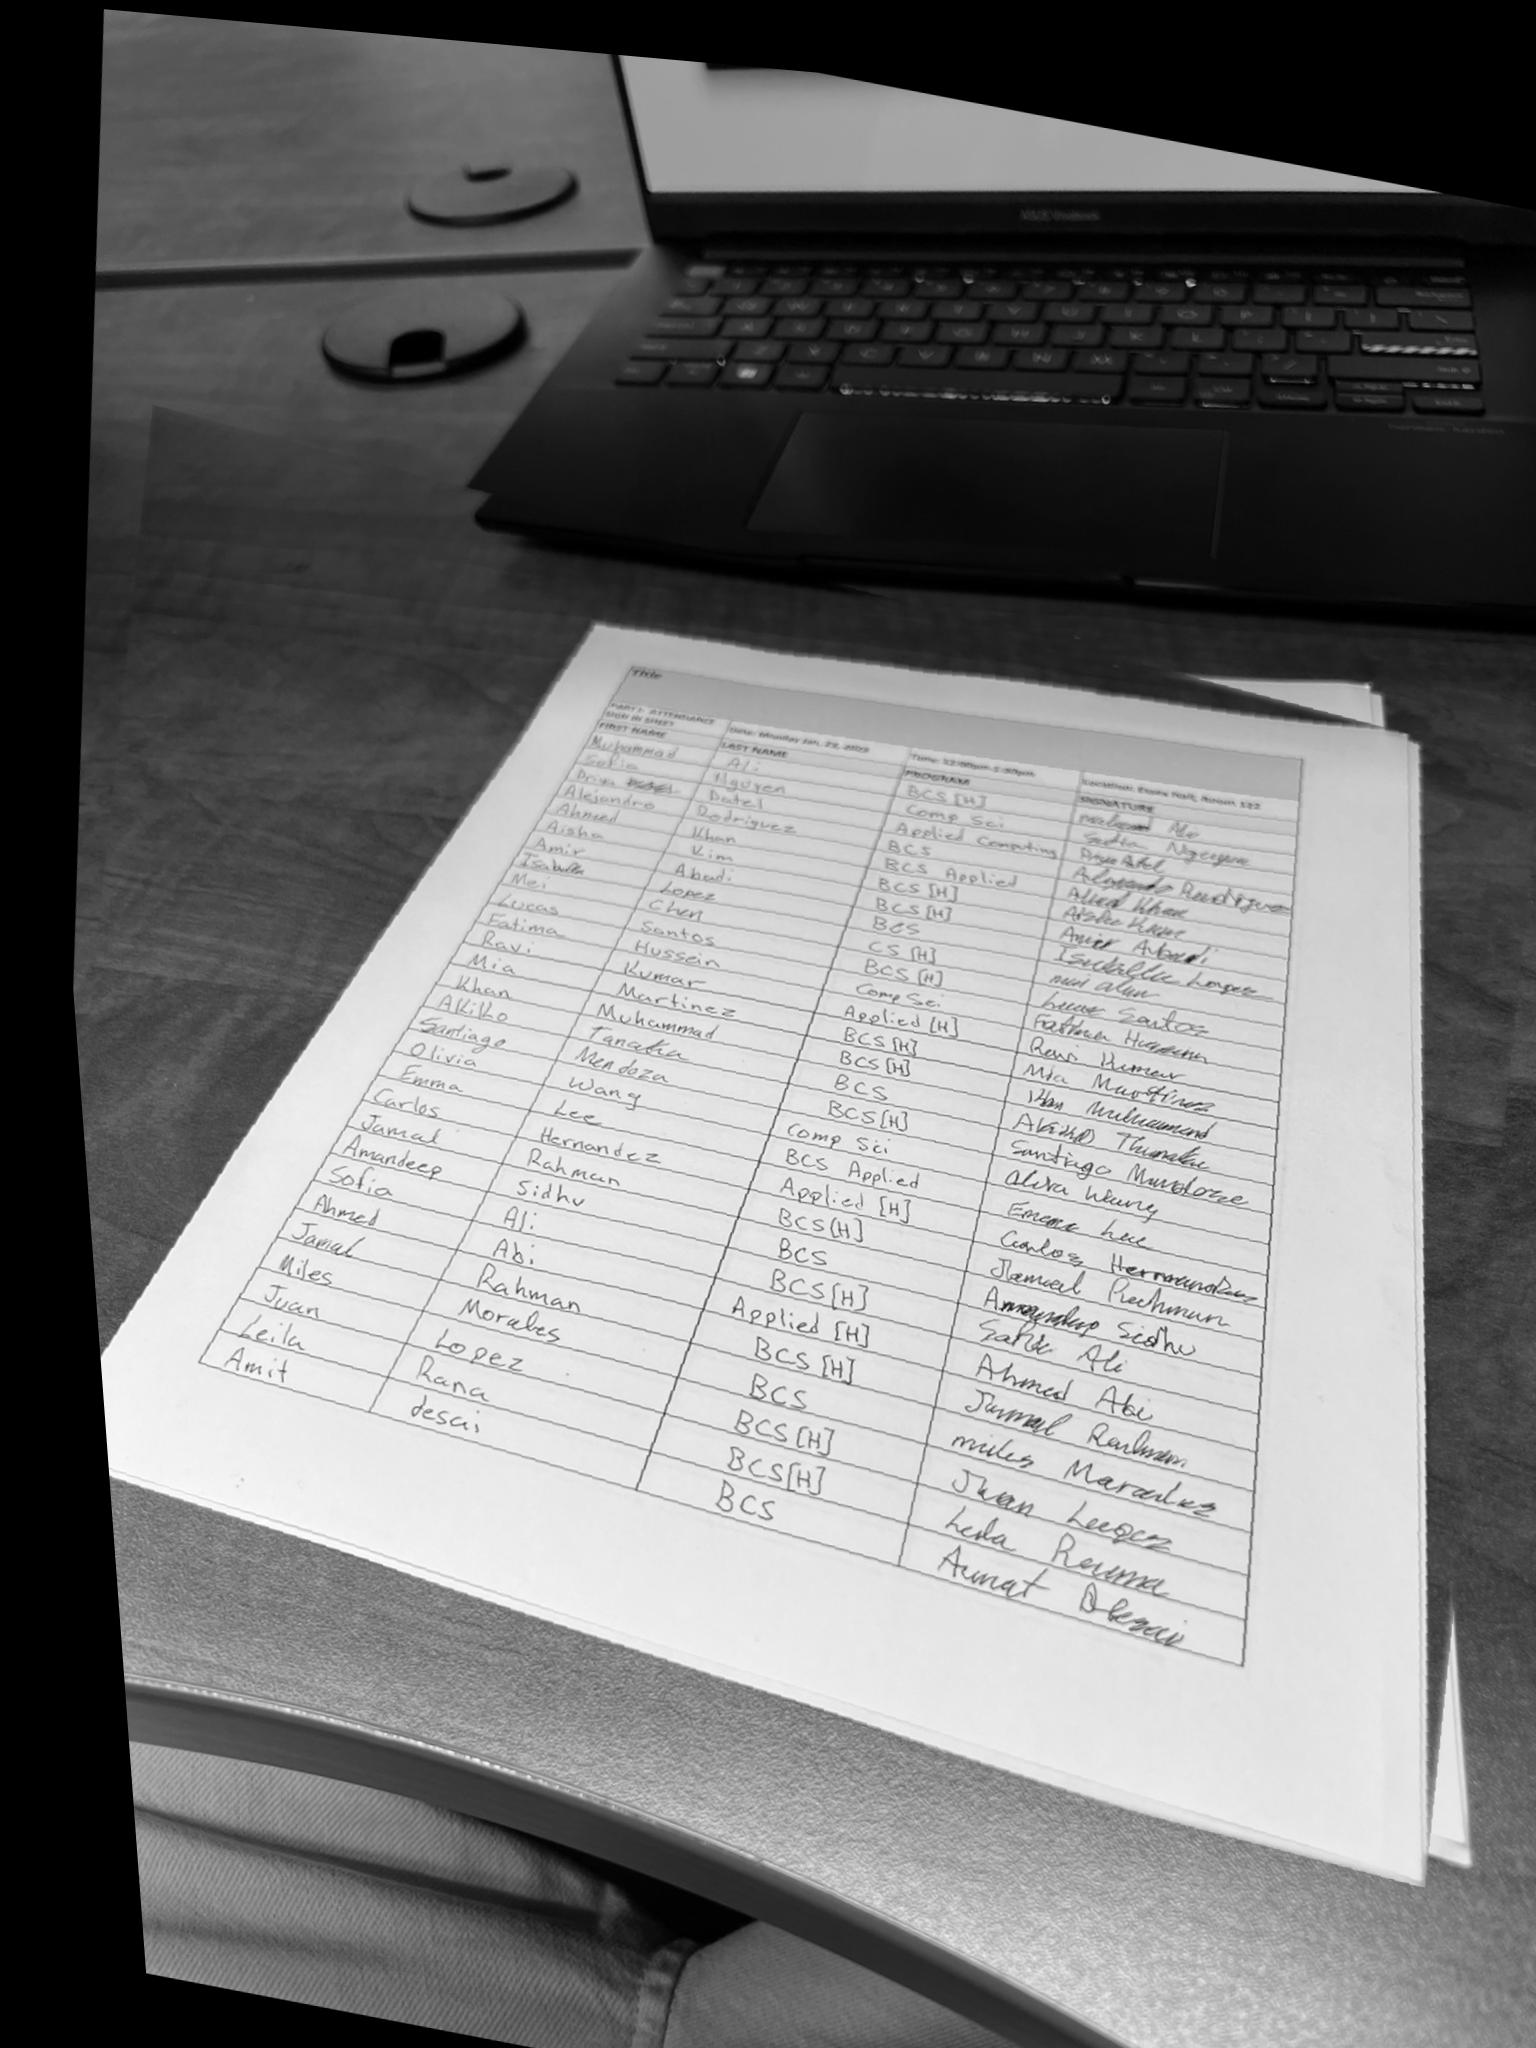 Title
PART I: ATTENDANCE SIGN IN SHEET Date: Monday Jan, 23, 2023 Time: 12:00pm-1:30pm Location: Essex Hall, Room 122
FIRST NAME LAST NAME PROGRAM SIGNATURE
Muhammad Ali BCS [H]
Sofia Nguyen Comp Sci Sofia Nguyen
Priya Patel Applied Computing Priya Patel
Alejandro Rodriguez BCS Alejandro Rodriguez
Ahmed Khan BCS Applied Ahmed Khan
Aisha Kim BCS [H] Aisha
Amir Abadi BCS [H] Amir Abadi
Isabella Lopez BCS Isabella Lopez
Mei Chen CS [H] mei
Lucas Santos BCS [H] Lucas Santos
Fatima Hussein Comp Sci Fatima Hussein
Ravi Kumar Applied [H] Ravi Kumar
Mia Martinez BCS [H] Mia Martinez
Khan Muhammad BCS [H] Khan Muhammad
Akiko Tanaka BCS
Santiago Mendoza BCS [H] Santiago Mendoza
Olivia Wang Comp Sci Olivia Wang
Emma Lee BCS Applied Emma Lee
Carlos Hernandez Applied [H] Carlos Hernandez
Jamal Rahman BCS [H] Jamal Rahman
Amandeep Sidhu BCS Amandeep Sidhu
Sofia Ali BCS [H] Sofia Ali
Ahmed Abi Applied [H] Ahmed Abi
Jamal Rahman BCS [H] Jamal Rahman
Miles Morales BCS miles Morales
Juan Lopez BCS [H] Juan Lopez
Leila Rana BCS [H] Leila Rana
Amit desai BCS Amit Desai